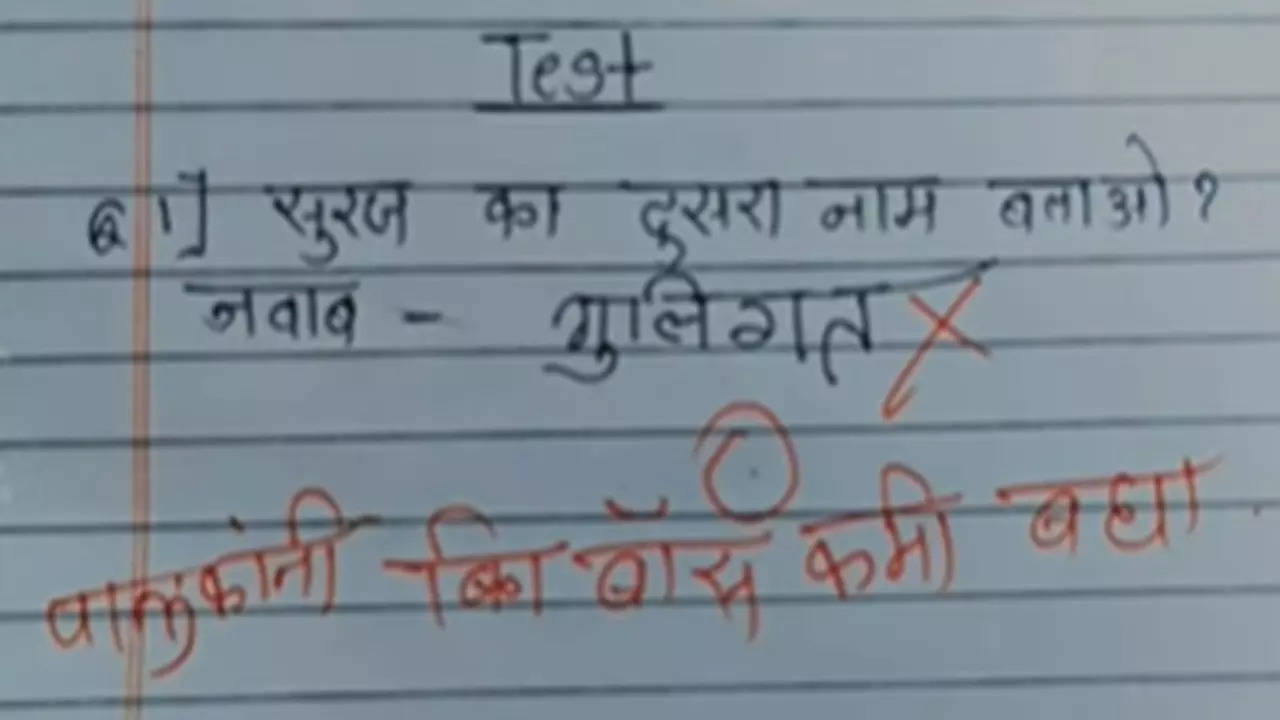 Test
Q1] सुरज का दुसरा नाम बताओ?
जवाब - गुलिगत X
0
पालकांनी बिग बॉस कमी बघा